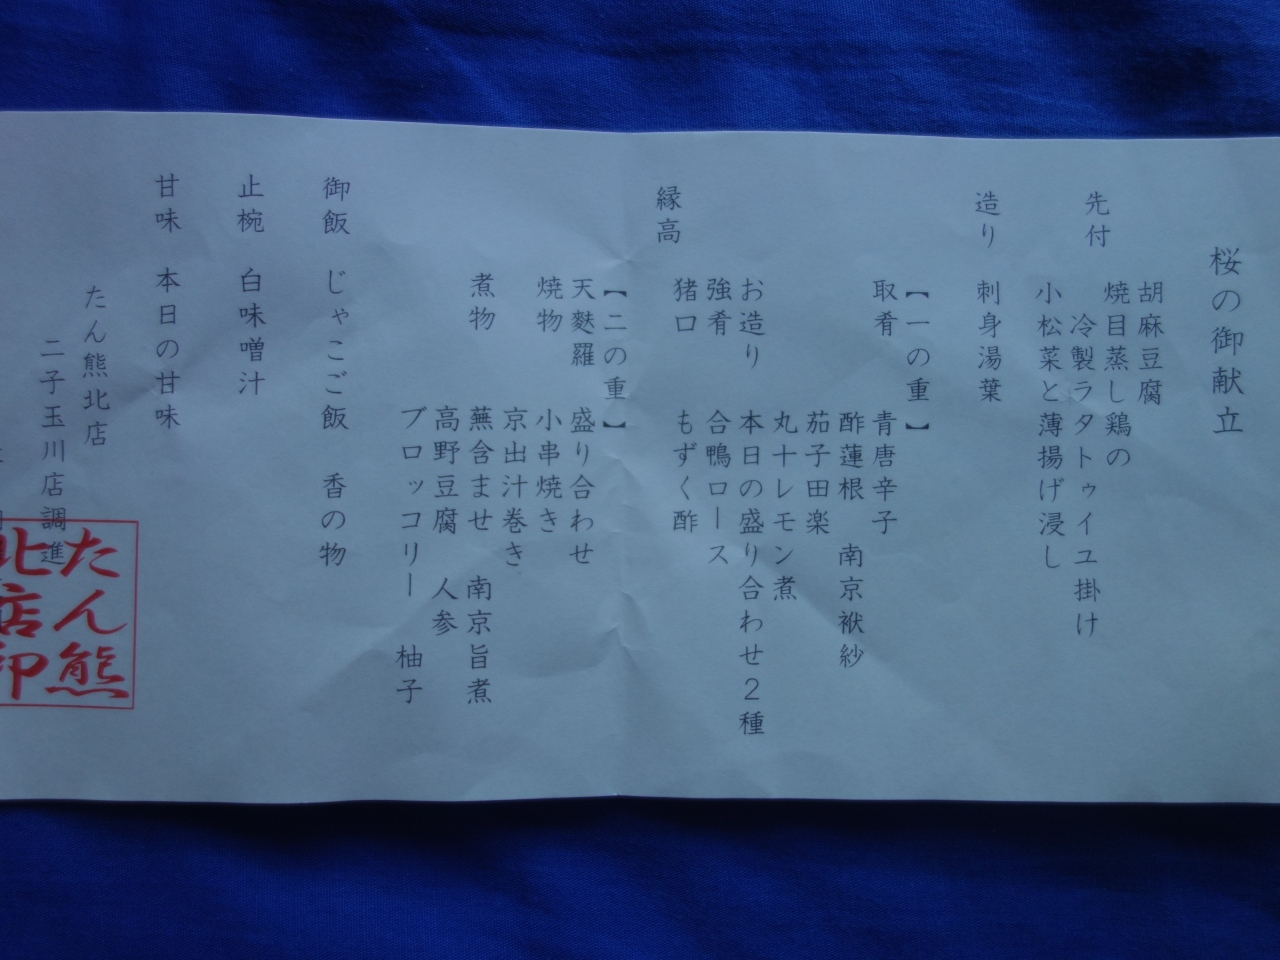 桜の御献立
先付
胡麻豆腐
焼目蒸し鶏の
冷製ラタトゥイユ掛け
小松菜と薄揚げ浸し
造り 刺身湯葉
縁高
【一の重】
取肴 青唐辛子
酢蓮根 南京袱紗
茄子田楽
丸十レモン煮
お造り 本日の盛り合わせ2種
強肴 合鴨ロース
猪口 もずく酢
【二の重】
天麩羅 盛り合わせ
焼物 小串焼き
京出汁巻き
煮物 蕪含ませ 南京旨煮
高野豆腐 人参
ブロッコリー 柚子
御飯 じゃこご飯 香の物
止椀 白味噌汁
甘味 本日の甘味
たん熊北店
二子玉川店調進
たん熊
北店印